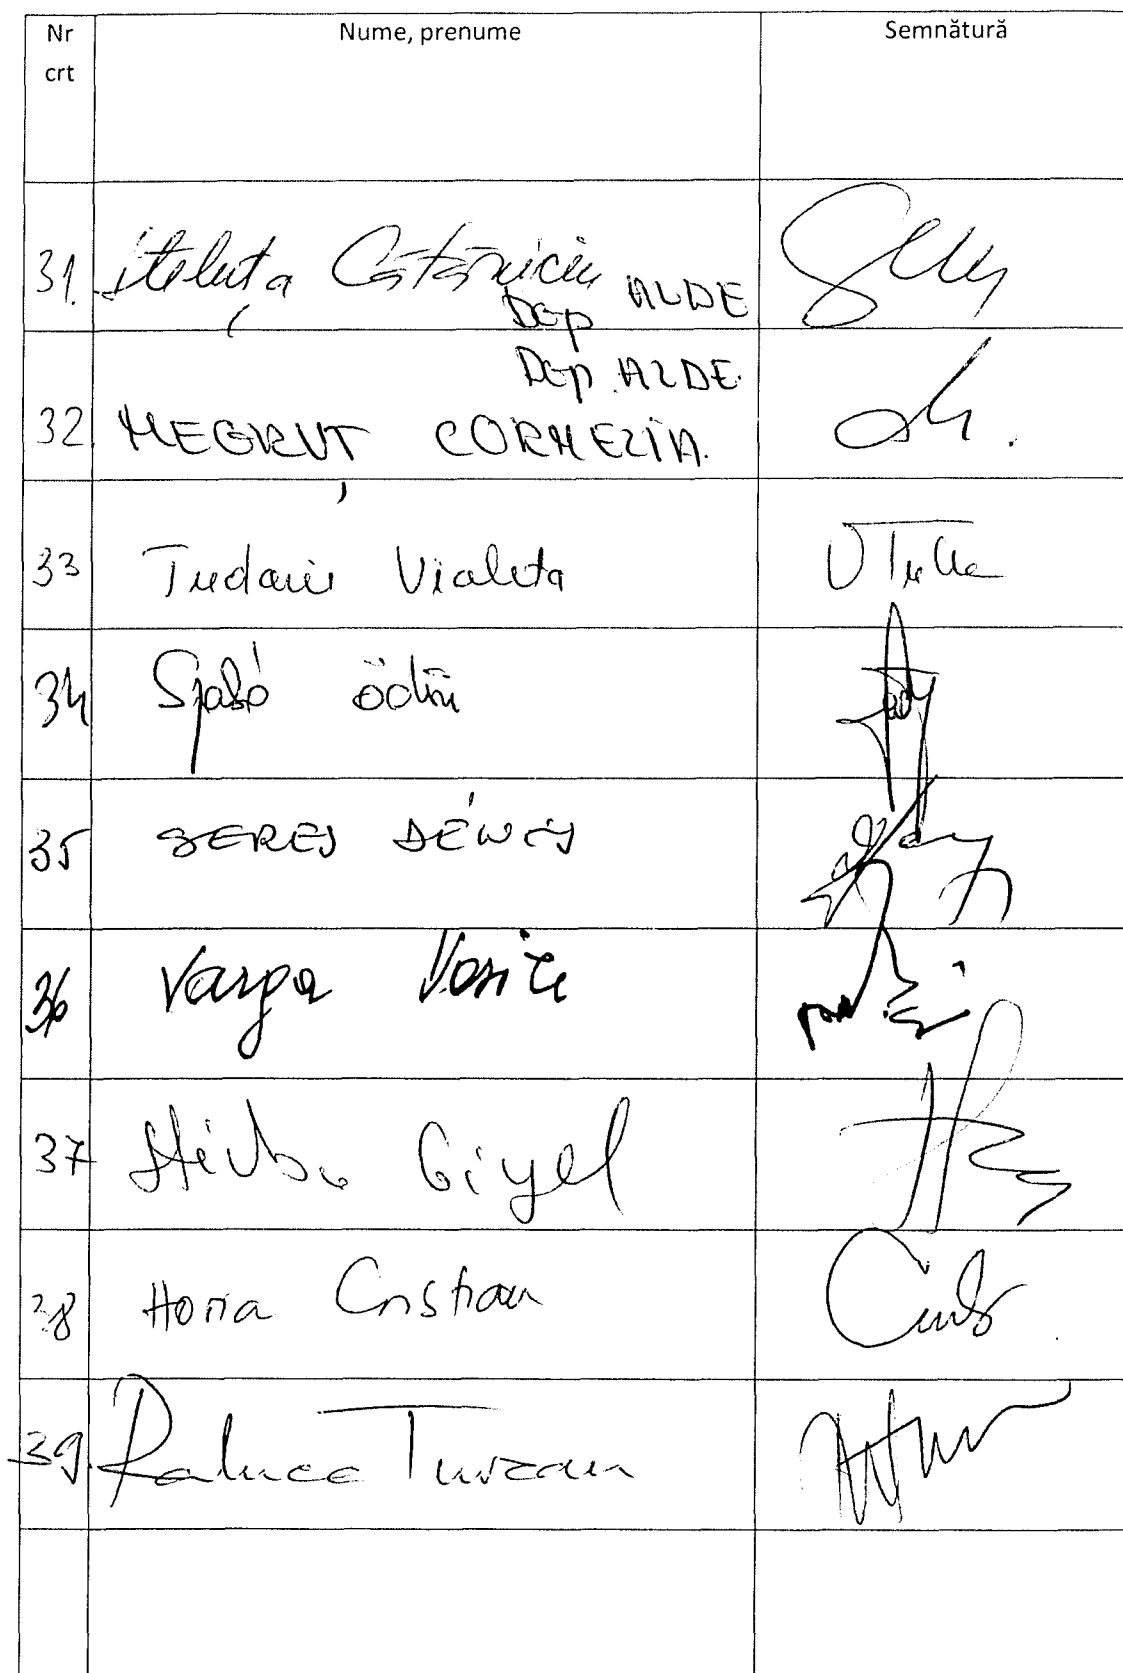 Nr crt Nume, prenume Semnătură
31. Steluța Cătăniciu Dep ALDE
Dep ALDE
32. NEGRUȚ CORNELIA
33 Tudorie Violeta
34 Szabó Ödön
35 SERES DÉNES
36 Varga Vasile
37 Știrbu Gigel
38 Horia Cristian
39. Raluca Turcan